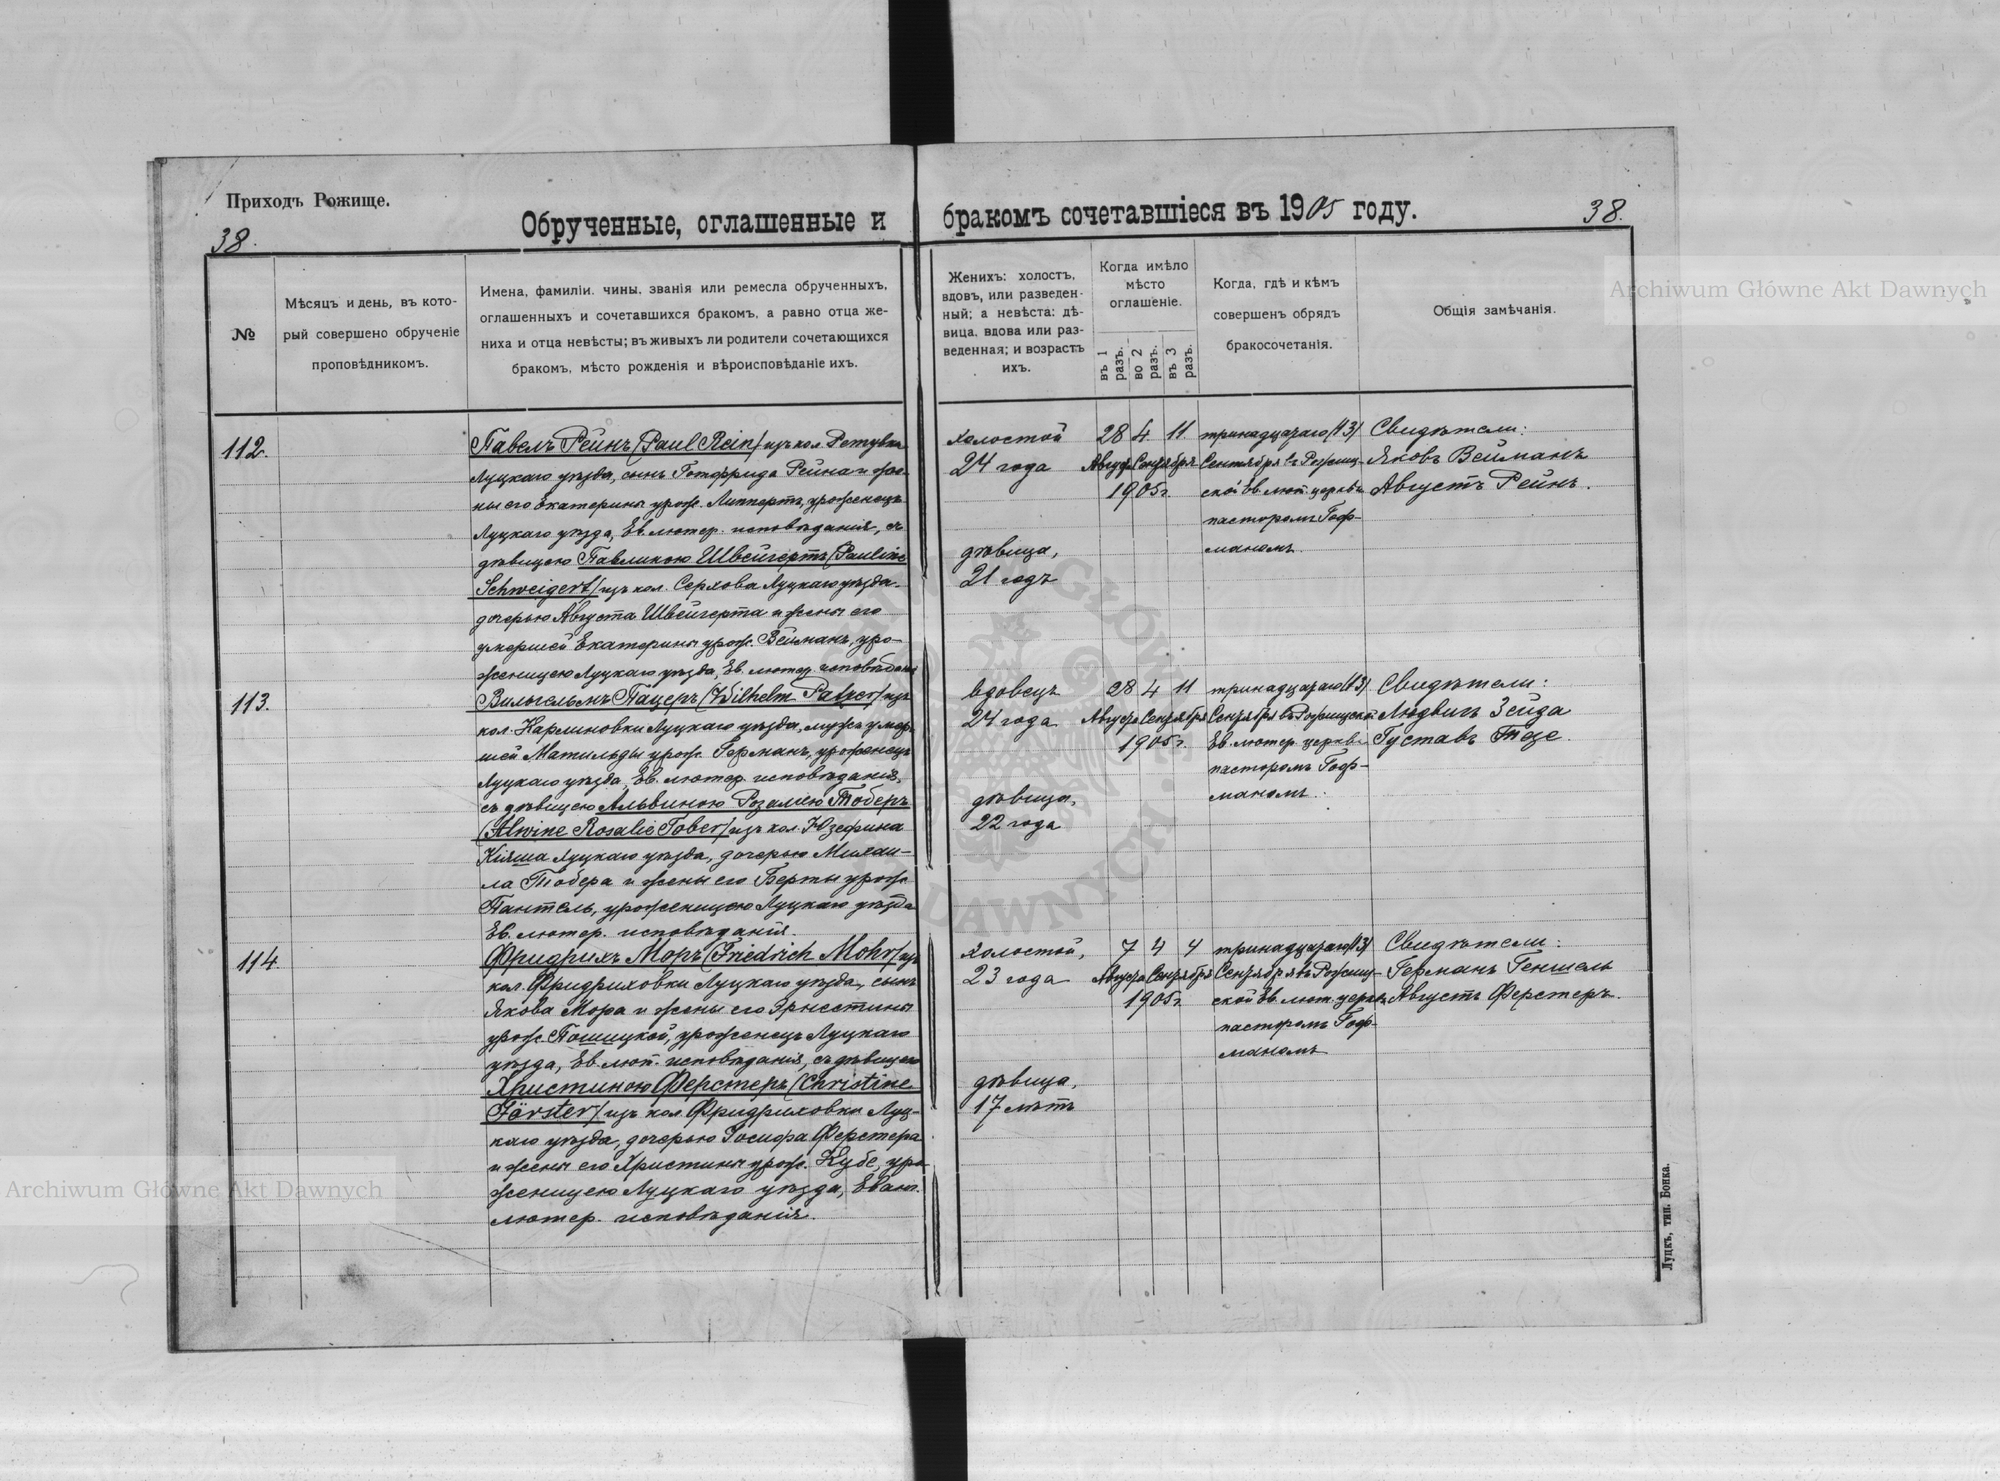 Приходъ Рожище.
38.
Обрученные, оглашенные и бракомъ сочетавшіеся въ 1905 году.
38.
№
Мѣсяцъ и день, въ кото-
рый совершено обрученіе
проповѣдникомъ.
Имена, фамиліи, чины, званія или ремесла обрученныхъ,
оглашенныхъ и сочетавшихся бракомъ, а равно отца же-
ниха и отца невѣсты; въ живыхъ ли родители сочетающихся
бракомъ, мѣсто рожденія и вѣроисповѣданіе ихъ.
Женихъ: холостъ,
вдовъ, или разведен-
ный; а невѣста: дѣ-
вица, вдова или раз-
веденная; и возрастъ
ихъ.
Когда имѣло
мѣсто
оглашеніе.
въ 1 разъ.
во 2 разъ.
въ 3 разъ.
Когда, гдѣ и кѣмъ
совершенъ обрядъ
бракосочетанія.
Общія замѣчанія.
112.
Павелъ Рейнъ (Paul Rein) изъ кол.
Луцкаго уѣзда, сынъ Готфрида Рейна и же-
ны его Екатерины урож. Липпертъ, уроженецъ
Луцкаго уѣзда, Ев. лютер. исповѣданія, съ
дѣвицею Павлиною Швейгертъ (Pauline
Schweigert) изъ кол. Серхова Луцкаго уѣзда
дочерью Августа Швейгерта и жены его
умершей Екатерины урож. Вейманъ, уро-
женицею Луцкаго уѣзда, Ев. лютер. исповѣданія
холостой
24 года
дѣвица,
21 годъ
28 4 11
Августа Сентября
1905 г.
тринадцатаго (13)
Сентября въ Рожищ-
ской Ев. лют. церкви
пасторомъ Гоф-
маномъ.
Свидѣтели:
Яковъ Вейманъ
Августъ Рейнъ.
113.
Вильгельмъ Пацеръ (Wilhelm Patzer) изъ
кол. Карлиновки Луцкаго уѣзда, мужъ умер-
шей Матильды урож. Германъ, уроженецъ
Луцкаго уѣзда, Ев. лютер. исповѣданія,
съ дѣвицею Альвиною Розалiею Тоберъ
(Alwine Rosalie Tober) изъ кол. Юзефина
Луцкаго уѣзда, дочерью Михаи-
ла Тобера и жены его Берты урож.
Пантель, уроженицею Луцкаго уѣзда
Ев. лютер. исповѣданія.
вдовецъ
24 года
дѣвица,
22 года
28 4 11
Августа Сентября
1905 г.
тринадцатаго (13)
Сентября въ Рожищской
Ев. лютер. церкви
пасторомъ Гоф-
маномъ.
Свидѣтели:
Людвигъ Зейда
Густавъ Тезе.
114
Фридрихъ Моръ (Friedrich Mohr) изъ
кол. Фридриховки Луцкаго уѣзда, сынъ
Якова Мора и жены его Эрнестины
урож. Пошицкой, уроженецъ Луцкаго
уѣзда, Ев. лют. исповѣданія, съ дѣвицею
Христиною Ферстеръ (Christine
Förster) изъ кол. Фридриховки Луц-
каго уѣзда, дочерью Госифа Ферстера
и жены его Христины урож. Кубе, уро
женицею Луцкаго уѣзда, Еванг.
лютер. исповѣданія.
холостой,
23 года
дѣвица,
17 лѣтъ
7 4 4
Августа Сентября
1905 г.
тринадцатаго (13)
Сентября въ Рожищ-
ской Ев. лют. церкви
пасторомъ Гоф-
маномъ
Свидѣтели:
Германъ Геншель
Августъ Ферстеръ.
Луцкъ, тип. Бонка.
Archiwum Główne Akt Dawnych
Archiwum Główne Akt Dawnych